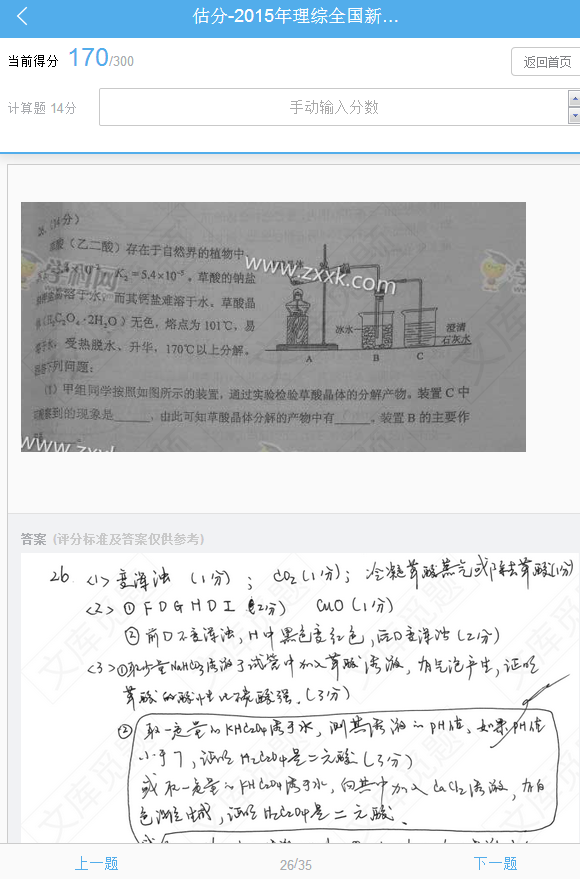 估分-2015年理综全国新...
当前得分 170/300
返回首页
计算题 14分
手动输入分数
26.(14分)
草酸(乙二酸)存在于自然界的植物中,
K₂=5.4×10⁻⁵。草酸的钠盐
溶于水,而其钙盐难溶于水。草酸晶
(H₂C₂O₄·2H₂O)无色,熔点为101℃,易
溶于水,受热脱水、升华,170℃以上分解。
回答下列问题:
冰水
澄清
石灰水
A B C
(1)甲组同学按照如图所示的装置,通过实验检验草酸晶体的分解产物。装置C中
可观察到的现象是______,由此可知草酸晶体分解的产物中有______。装置B的主要作
www.zxxk.com
学科网
www.zxxk
答案 (评分标准及答案仅供参考)
26 <1>变浑浊 (1分); CO₂(1分); 冷凝草酸蒸气或除去草酸(1分)
<2> ① F D G H D I (2分) CuO(1分)
②前D不变浑浊,H中黑色变红色,后D变浑浊(2分)
<3> ①取少量NaHCO₃溶液于试管中加入草酸溶液,有气泡产生,证明
草酸的酸性比碳酸强.(3分)
② 取一定量的KHC₂O₄溶于水,测其溶液的pH值,如果pH值
小于7,证明H₂C₂O₄是二元酸(3分)
或取一定量的KHC₂O₄溶于水,向其中加入CaCl₂溶液,有白
色沉淀生成,证明H₂C₂O₄是二元酸.
上一题
26/35
下一题